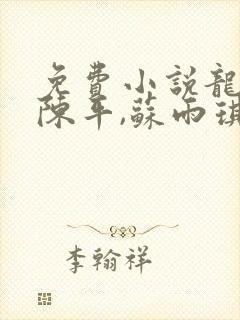 免費小説龍
陳平,蘇雨琪
李翰祥